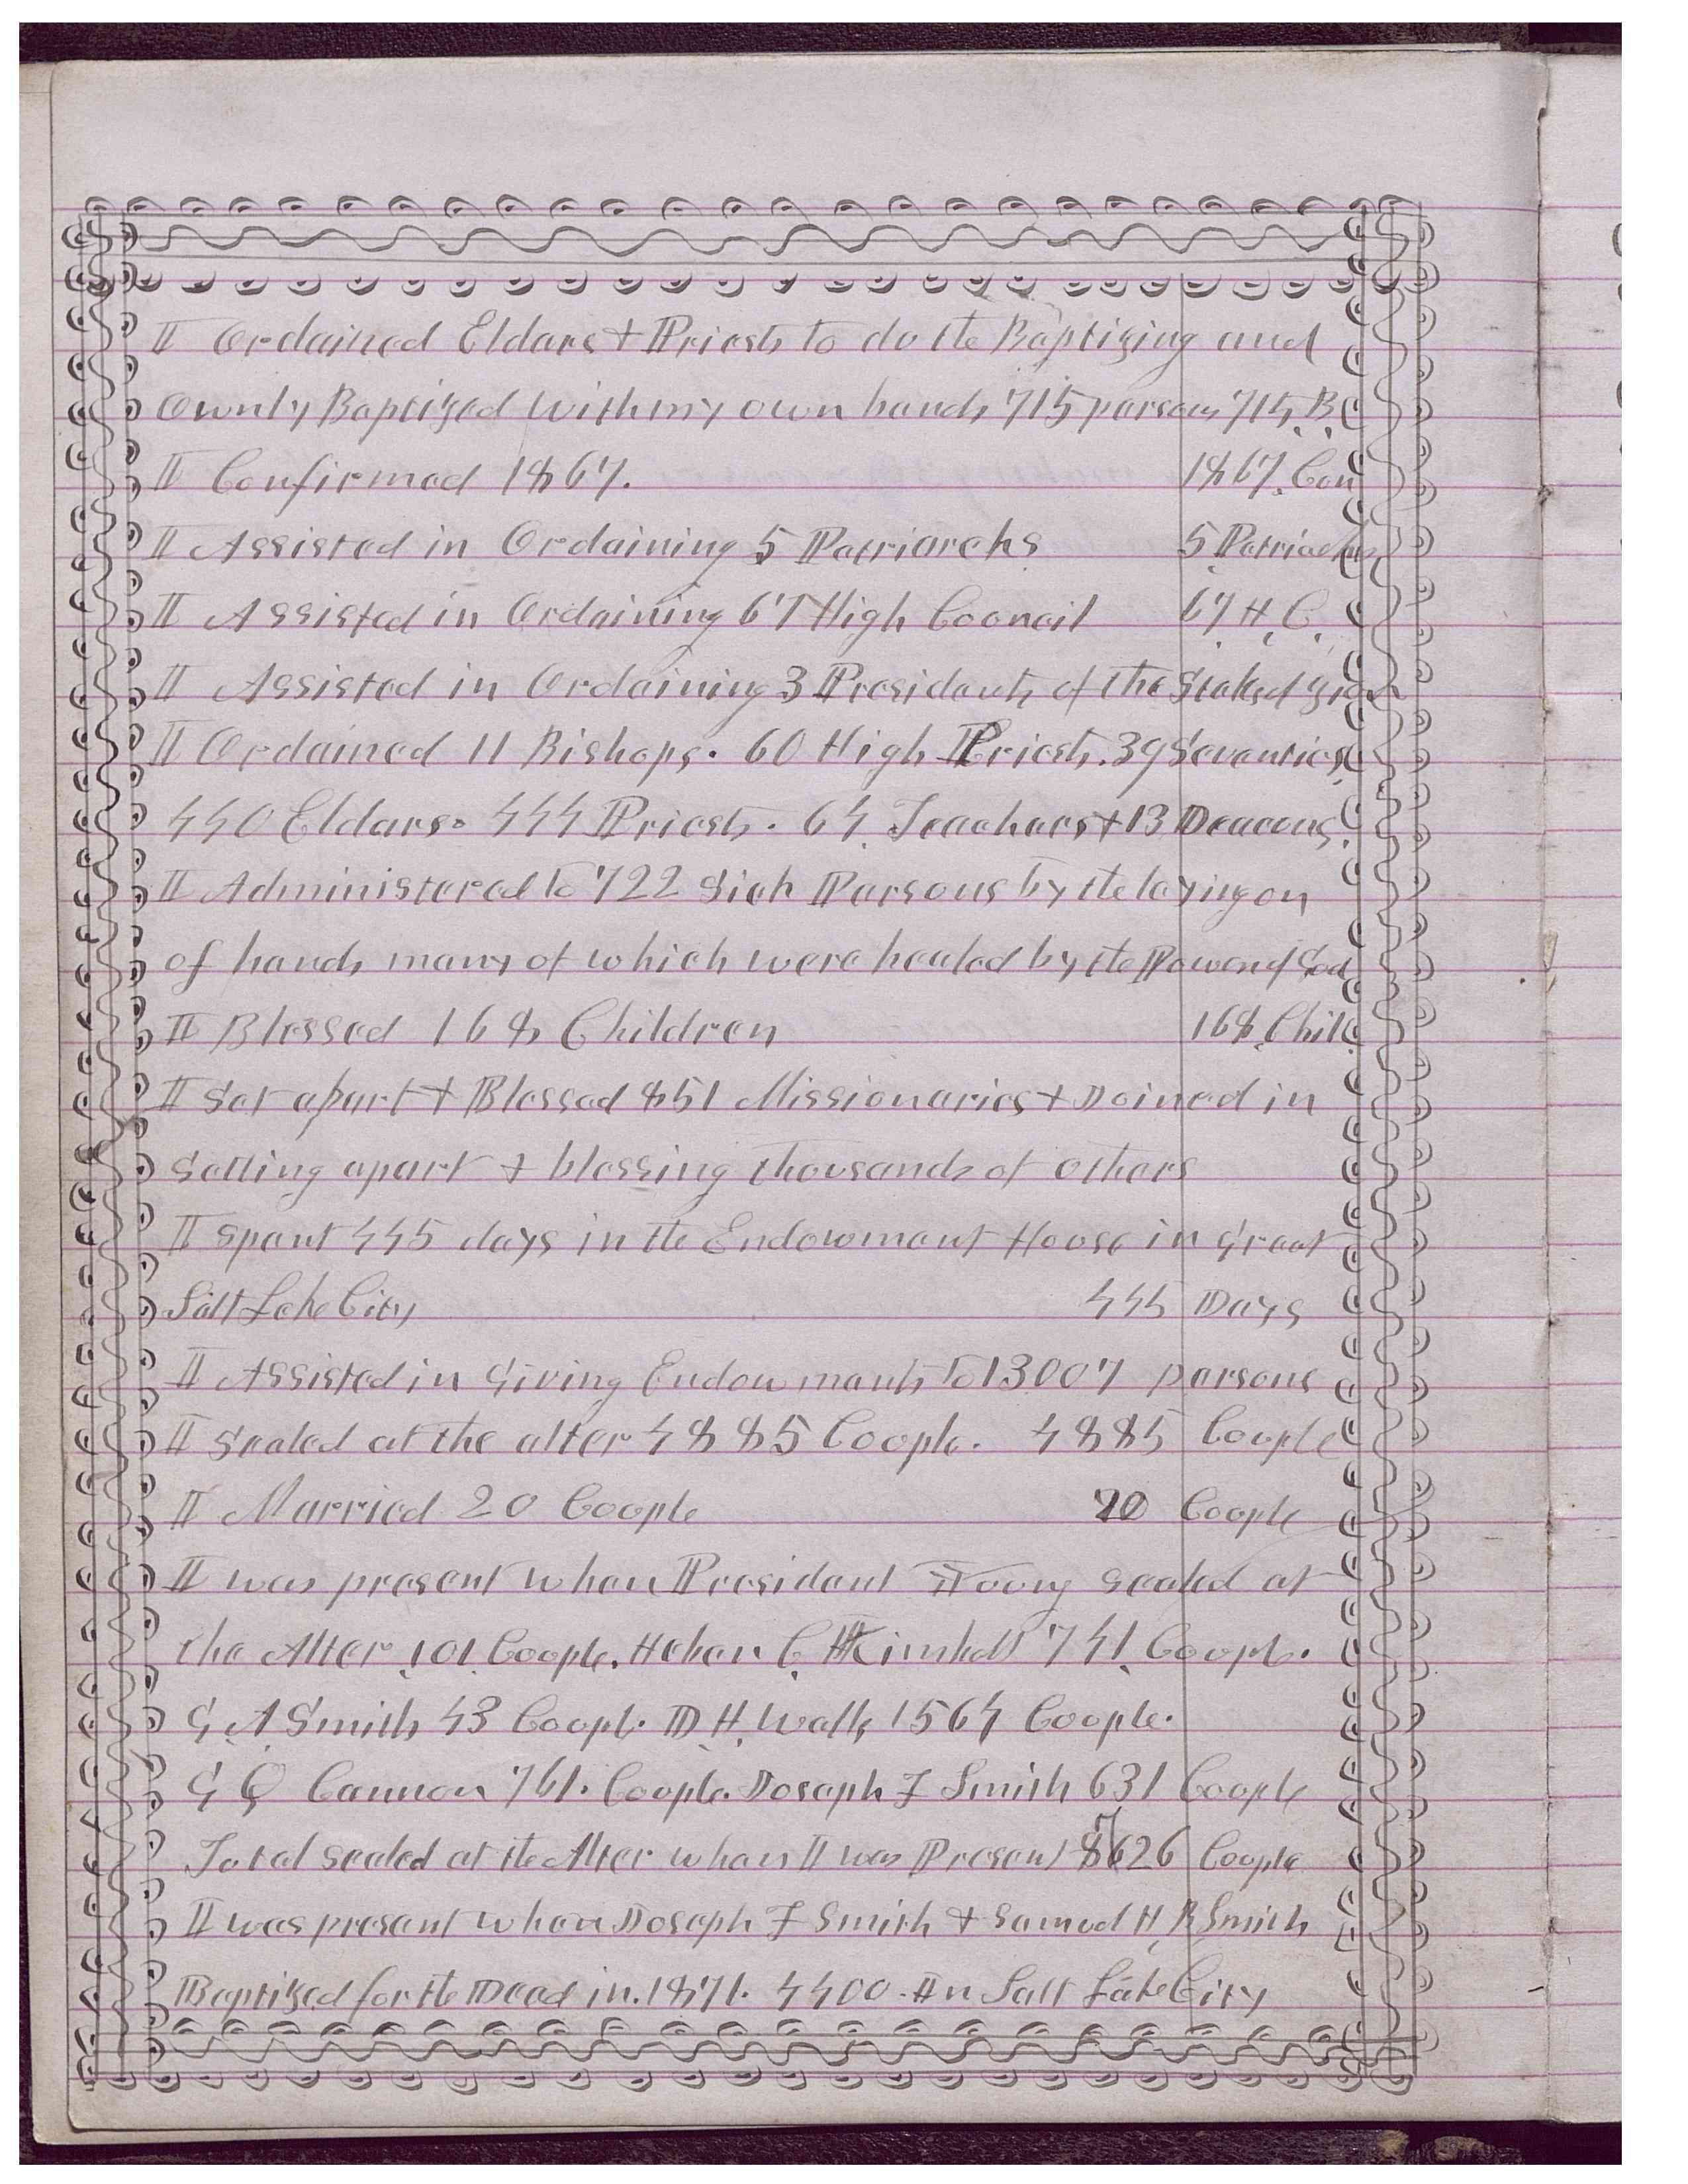 I Ordained Elders & Priests to do the Baptizing and
ownly Baptized with my own hands 715 persons 715, B.
I Confirmed 1867. 1867, Con
I Assisted in Ordaining 5 Patriarchs 5 Patriarchs
I Assisted in Ordaining 67 High Councail 67 H. C.
I Assisted in Ordaining 3 Presidents of the Stake of Zion
I Ordained 11 Bishops. 60 High Priests. 39 Seventies,
440 Elders. 444 Priests. 64 Teachers & 13 Deacons,
I Administered to 722 Sick Persons by the laying on
of hands many of which were healed by the Power of God
I Blessed 168 Children 168 Chil
I Set apart & Blessed 851 Missionaries & Joined in
Setting apart & blessing thousands of others
I spent 445 days in the Endowment House in Great
Salt Lake City 445 Days
I Assisted in Giving Endowments to 13007 persons
I Sealed at the alter 4885 Couple. 4885 Couple
I Married 20 Couple 20 Couple
I was present when President Young sealed at
the Alter 101 Couple. Heber C Kimball 741 Couple.
G A Smith 43 Couple. D H. Wells 1564 Couple.
G Q Cannon 761. Couple. Joseph F Smith 631 Couple
Total sealed at the Alter when I was Present 8626 Couple
I was present when Joseph F Smith & Samuel H B Smith
Baptized for the Dead in. 1871. 4400. In Salt Lake City